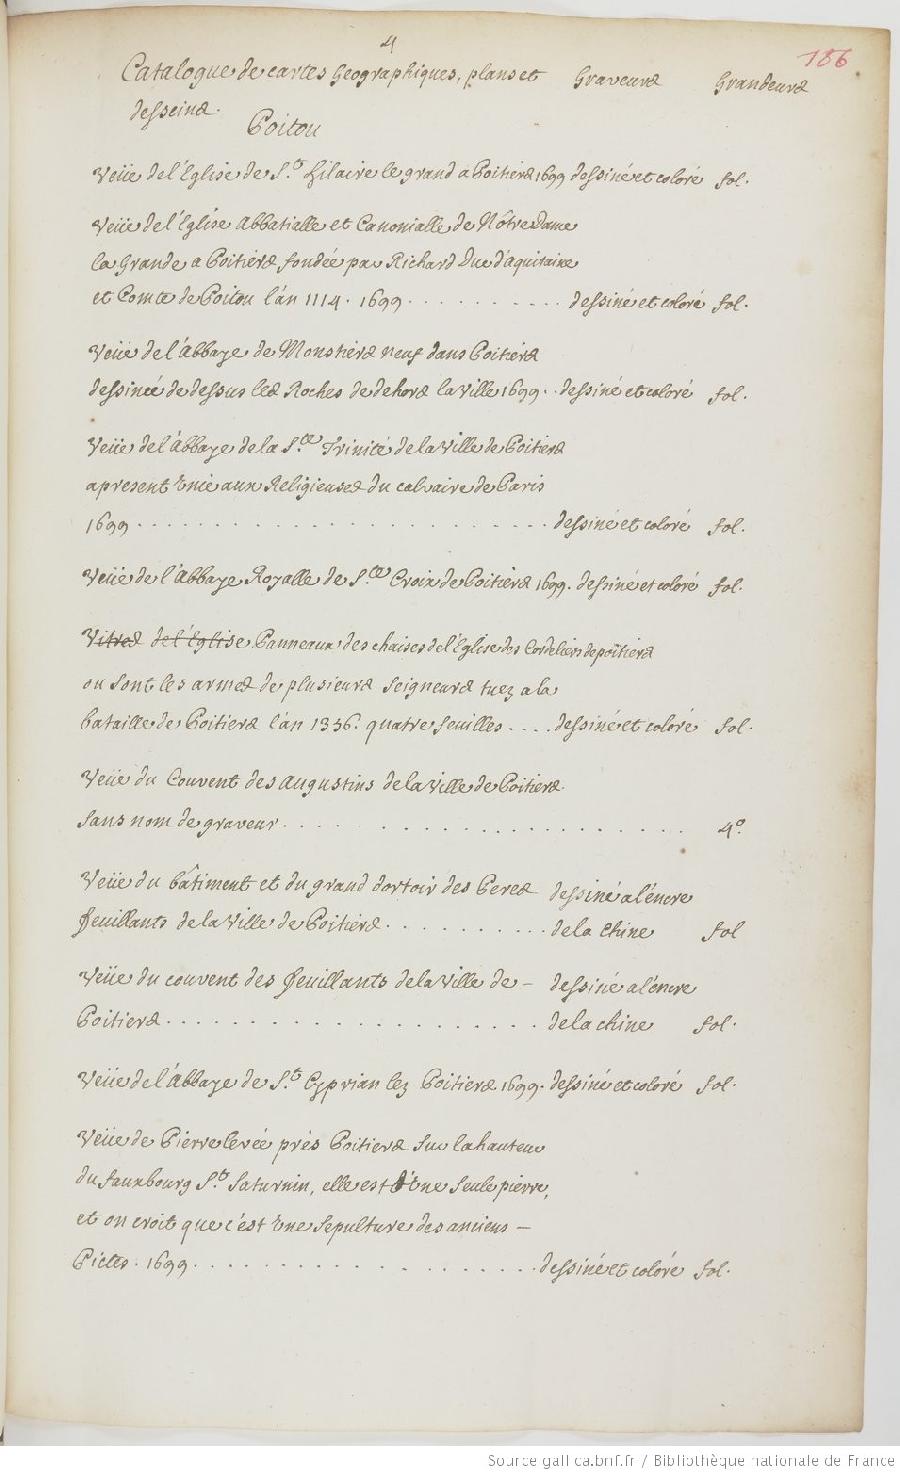 4
186
Catalogue de cartes Geographiques, plans et Graveurs Grandeurs
desseins.
Poitou
Veüe de l'Eglise de St. Hilaire le grand a Poitiers 1699 dessiné et coloré fol.
Veüe de l'Eglise Abbatialle et Canonialle de Nôtre Dame
la Grande a Poitiers fondée par Richard Duc d'aquitaine
et Comte de Poitou l'an 1114. 1699 . . . . . . . . . . dessiné et coloré fol.
Veüe de l'Abbaye de Monstiers neuf dans Poitiers
dessinée de dessus les Roches de dehors la Ville 1699. . dessiné et coloré fol.
Veüe de l'Abbaye de la Ste. Trinité de la Ville de Poitiers
apresent Unie aux Religieuses du calvaire de Paris
1699 . . . . . . . . . . . . . . . . . . . . dessiné et coloré fol.
Veüe de l'Abbaye Royalle de Ste. Croix de Poitiers 1699. dessiné et coloré fol.
Vitres de l'Eglise Panneaux des chaises de l'Eglise des Cordeliers de poitiers
ou sont les armes de plusieurs seigneurs tuez a la
bataille de Poitiers l'an 1356. quatre feuilles . . . . dessiné et coloré fol.
Veüe du Couvent des Augustins de la Ville de Poitiers.
sans nom de graveur . . . . . . . . . . . . . . . . 4o.
Veüe du bâtiment et du grand dortoir des Peres dessiné a l'encre
feuillants de la Ville de Poitiers . . . . . . . . . . de la Chine fol
Veüe du couvent des feuillants de la Ville de – dessiné a l'encre
Poitiers . . . . . . . . . . . . . . . . . . . de la chine fol.
Veüe de l'Abbaye de St. Cyprian lez Poitiers 1699. dessiné et coloré fol.
Veüe de Pierre levée prés Poitiers sur la hauteur
du fauxbourg St. Saturnin, elle est d'Une seule pierre,
et on croit que c'est Une sepulture des anciens –
Pictes. 1699 . . . . . . . . . . . . . . . . . . dessiné et coloré fol.
Source gallica.bnf.fr / Bibliothèque nationale de France